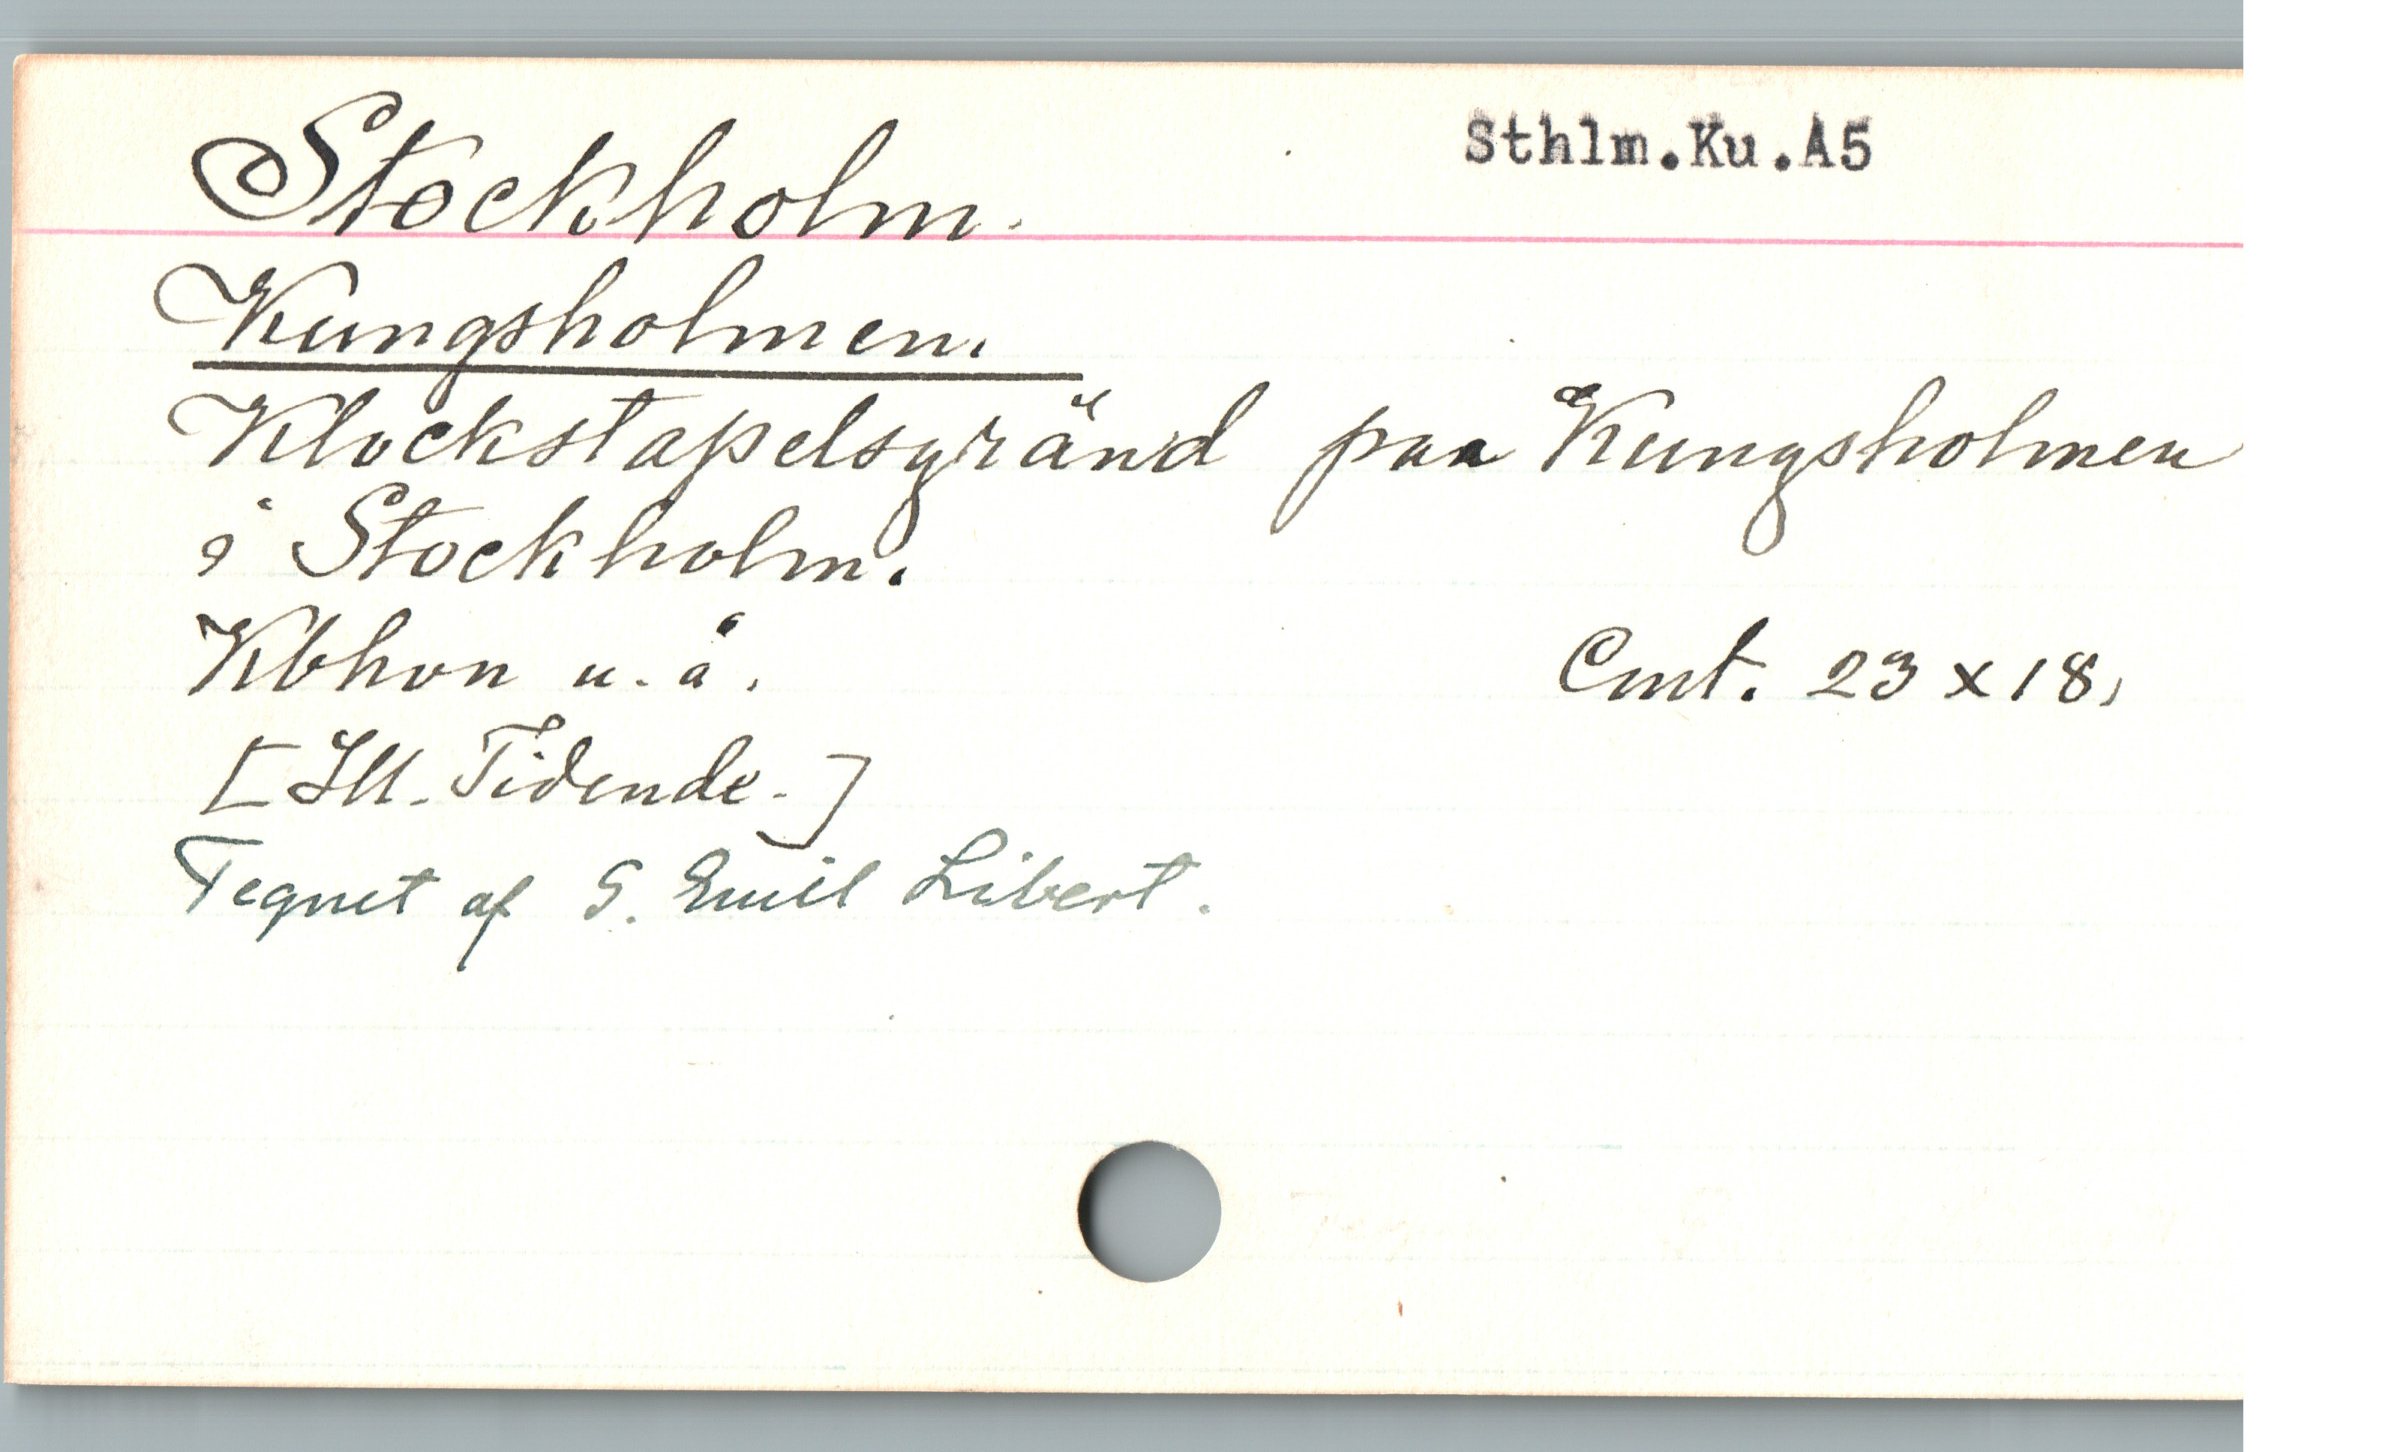 Stockholm. Sthlm.Ku.A5
Kungsholmen.
Klockstapelsgränd paa Kungsholmen
i Stockholm.
Kbhvn u.å. Cmt. 23 x 18,
[Ill. Tidende.]
Tegnet af G. Emil Libert.